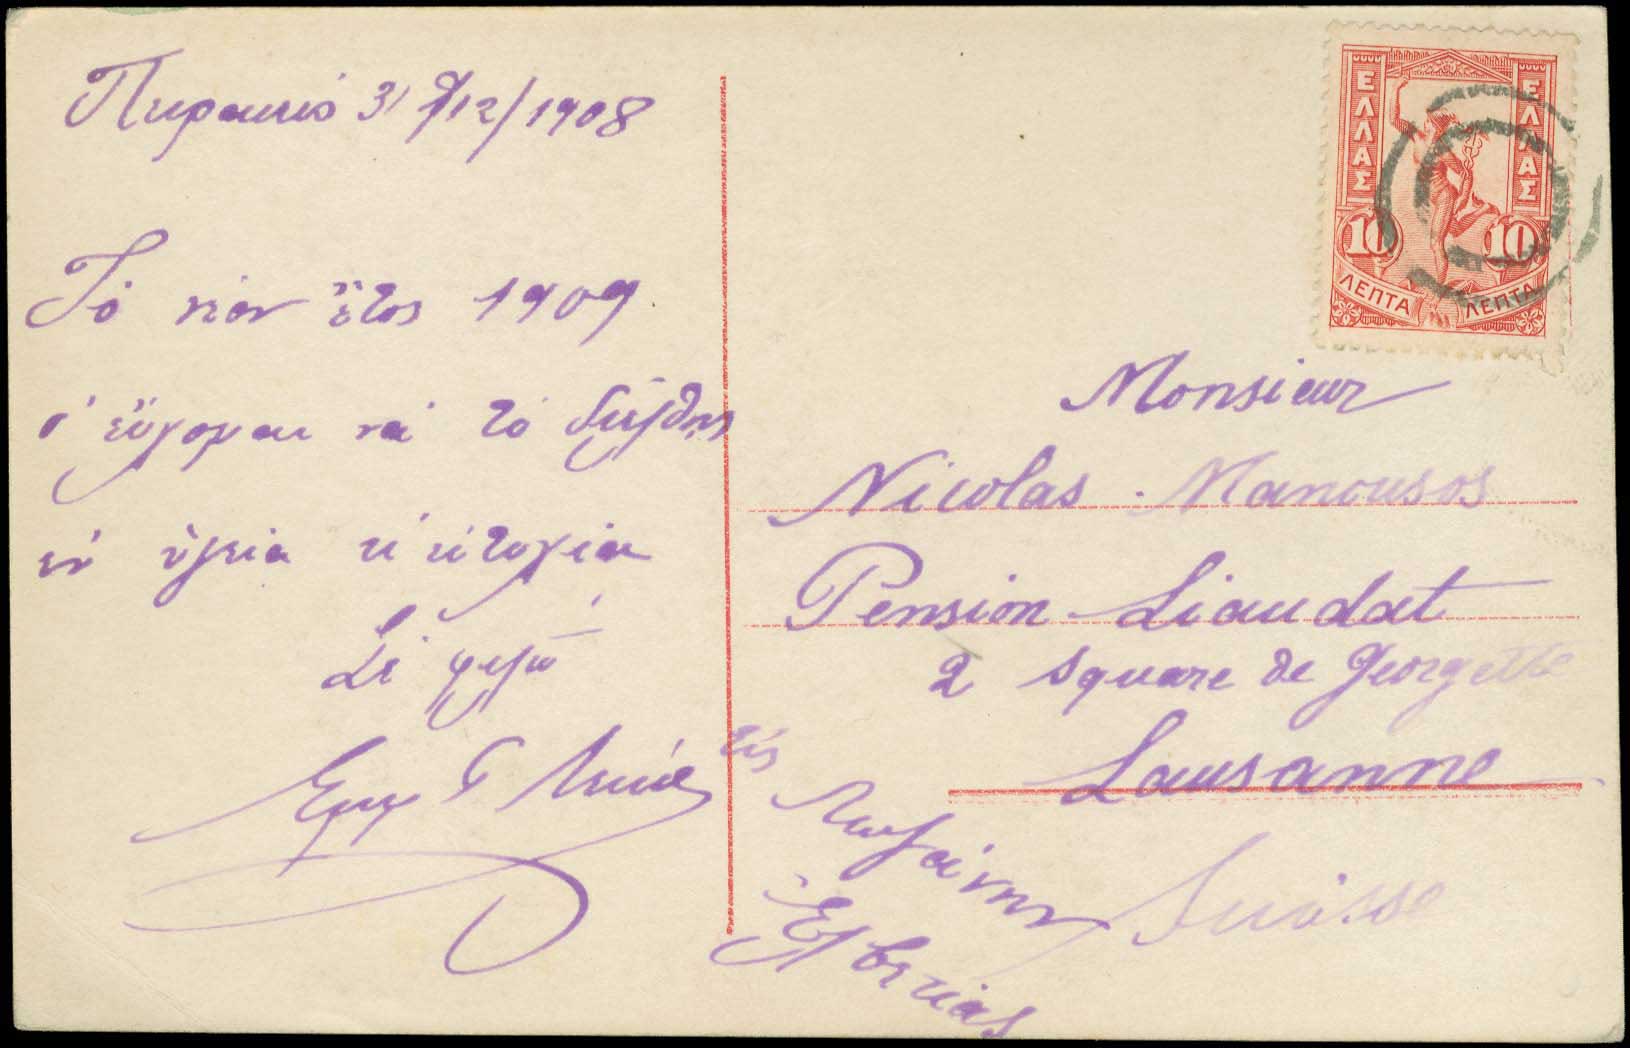 Πειραιεύς 31/12/1908
Τὸ νέον ἔτος 1909
σ' εὔχομαι νὰ τὸ διέλθης
ἐν ὑγεία κ' εὐτυχία
Σὲ φιλῶ
Εμμ Γ
εἰς
Λωζάννην
Ἑλβετίας
ΕΛΛΑΣ
ΕΛΛΑΣ
10
10
ΛΕΠΤΑ
ΛΕΠΤΑ
Monsieur
Nicolas Manousos
Pension Liaudat
2 Square de Georgette
Lausanne
Suisse